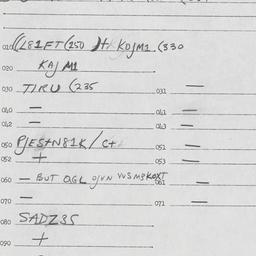 010 ((L81FT(250 Jt KOJM1.(330
020 KAJ M1
030 TIRU (235 031 —
040 — 041 —
042 — 043 —
050 PJES+N81K/C+ 051 —
052 + 053 —
060 — BUT OGL OJVN VVSM8KOXT 061 —
070 — 071 —
080 SADZ35
090 +